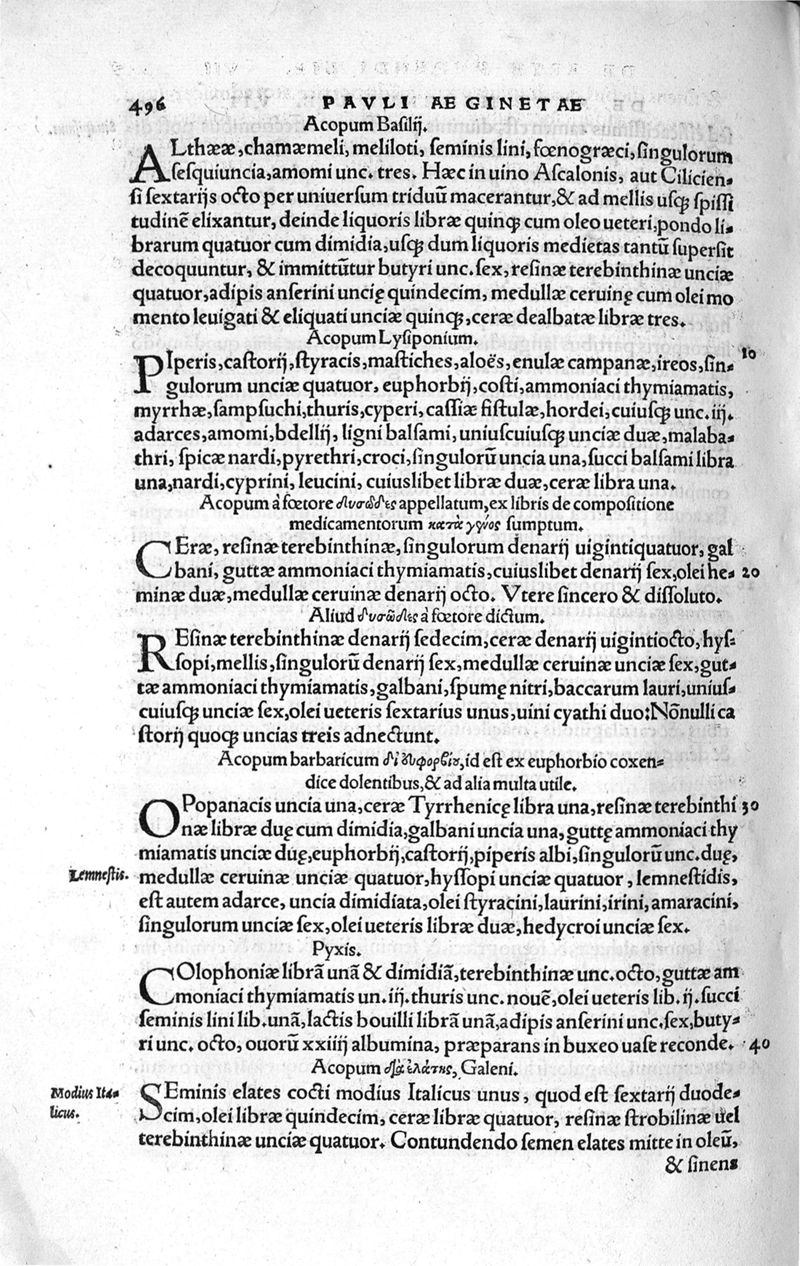 496 PAVLI AEGINETAE
Acopum Basilij.
ALthææ, chamæmeli, meliloti, seminis lini, fœnogræci, singulorum
sesquiuncia, amomi unc. tres. Hæc in uino Ascalonis, aut Cilicien-
si sextarijs octo per uniuersum triduū macerantur, & ad mellis usq; spissi
tudinē elixantur, deinde liquoris libræ quinq; cum oleo ueteri, pondo li-
brarum quatuor cum dimidia, usq; dum liquoris medietas tantū supersit
decoquuntur, & immittūtur butyri unc. sex, resinæ terebinthinæ unciæ
quatuor, adipis anserini uncię quindecim, medullæ ceruinę cum olei mo
mento leuigati & eliquati unciæ quinq;, ceræ dealbatæ libræ tres.
Acopum Lysiponium.
PIperis, castorij, styracis, mastiches, aloës, enulæ campanæ, ireos, sin- 10
gulorum unciæ quatuor, euphorbij, costi, ammoniaci thymiamatis,
myrrhæ, sampsuchi, thuris, cyperi, cassiæ fistulæ, hordei, cuiusq; unc. iij.
adarces, amomi, bdellij, ligni balsami, uniuscuiusq; unciæ duæ, malaba-
thri, spicæ nardi, pyrethri, croci, singulorū uncia una, succi balsami libra
una, nardi, cyprini, leucini, cuiuslibet libræ duæ, ceræ libra una.
Acopum à fœtore δυσῶδες appellatum, ex libris de compositione
medicamentorum κατὰ γένος sumptum.
CEræ, resinæ terebinthinæ, singulorum denarij uigintiquatuor, gal
bani, guttæ ammoniaci thymiamatis, cuiuslibet denarij sex, olei he- 20
minæ duæ, medullæ ceruinæ denarij octo. Vtere sincero & dissoluto.
Aliud δυσῶδες à fœtore dictum.
REsinæ terebinthinæ denarij sedecim, ceræ denarij uigintiocto, hys-
sopi, mellis, singulorū denarij sex, medullæ ceruinæ unciæ sex, gut-
tæ ammoniaci thymiamatis, galbani, spumę nitri, baccarum lauri, unius-
cuiusq; unciæ sex, olei ueteris sextarius unus, uini cyathi duo: Nōnulli ca
storij quoq; uncias treis adnectunt.
Acopum barbaricum δι' εὐφορβίου, id est ex euphorbio coxen-
dice dolentibus, & ad alia multa utile.
OPopanacis uncia una, ceræ Tyrrhenicę libra una, resinæ terebinthi 30
næ libræ duę cum dimidia, galbani uncia una, guttę ammoniaci thy
miamatis unciæ duę, euphorbij, castorij, piperis albi, singulorū unc. duę,
Lemnestis. medullæ ceruinæ unciæ quatuor, hyssopi unciæ quatuor, lemnestidis,
est autem adarce, uncia dimidiata, olei styracini, laurini, irini, amaracini,
singulorum unciæ sex, olei ueteris libræ duæ, hedycroi unciæ sex.
Pyxis.
COlophoniæ librā unā & dimidiā, terebinthinæ unc. octo, guttæ am
moniaci thymiamatis un. iij. thuris unc. nouē, olei ueteris lib. ij. succi
seminis lini lib. unā, lactis bouilli librā unā, adipis anserini unc. sex, buty-
ri unc. octo, ouorū xxiiij albumina, præparans in buxeo uase reconde. 40
Acopum διὰ ἐλάτης, Galeni.
Modius Ita- SEminis elates cocti modius Italicus unus, quod est sextarij duode-
licus. cim, olei libræ quindecim, ceræ libræ quatuor, resinæ strobilinæ uel
terebinthinæ unciæ quatuor. Contundendo semen elates mitte in oleū,
& sinens